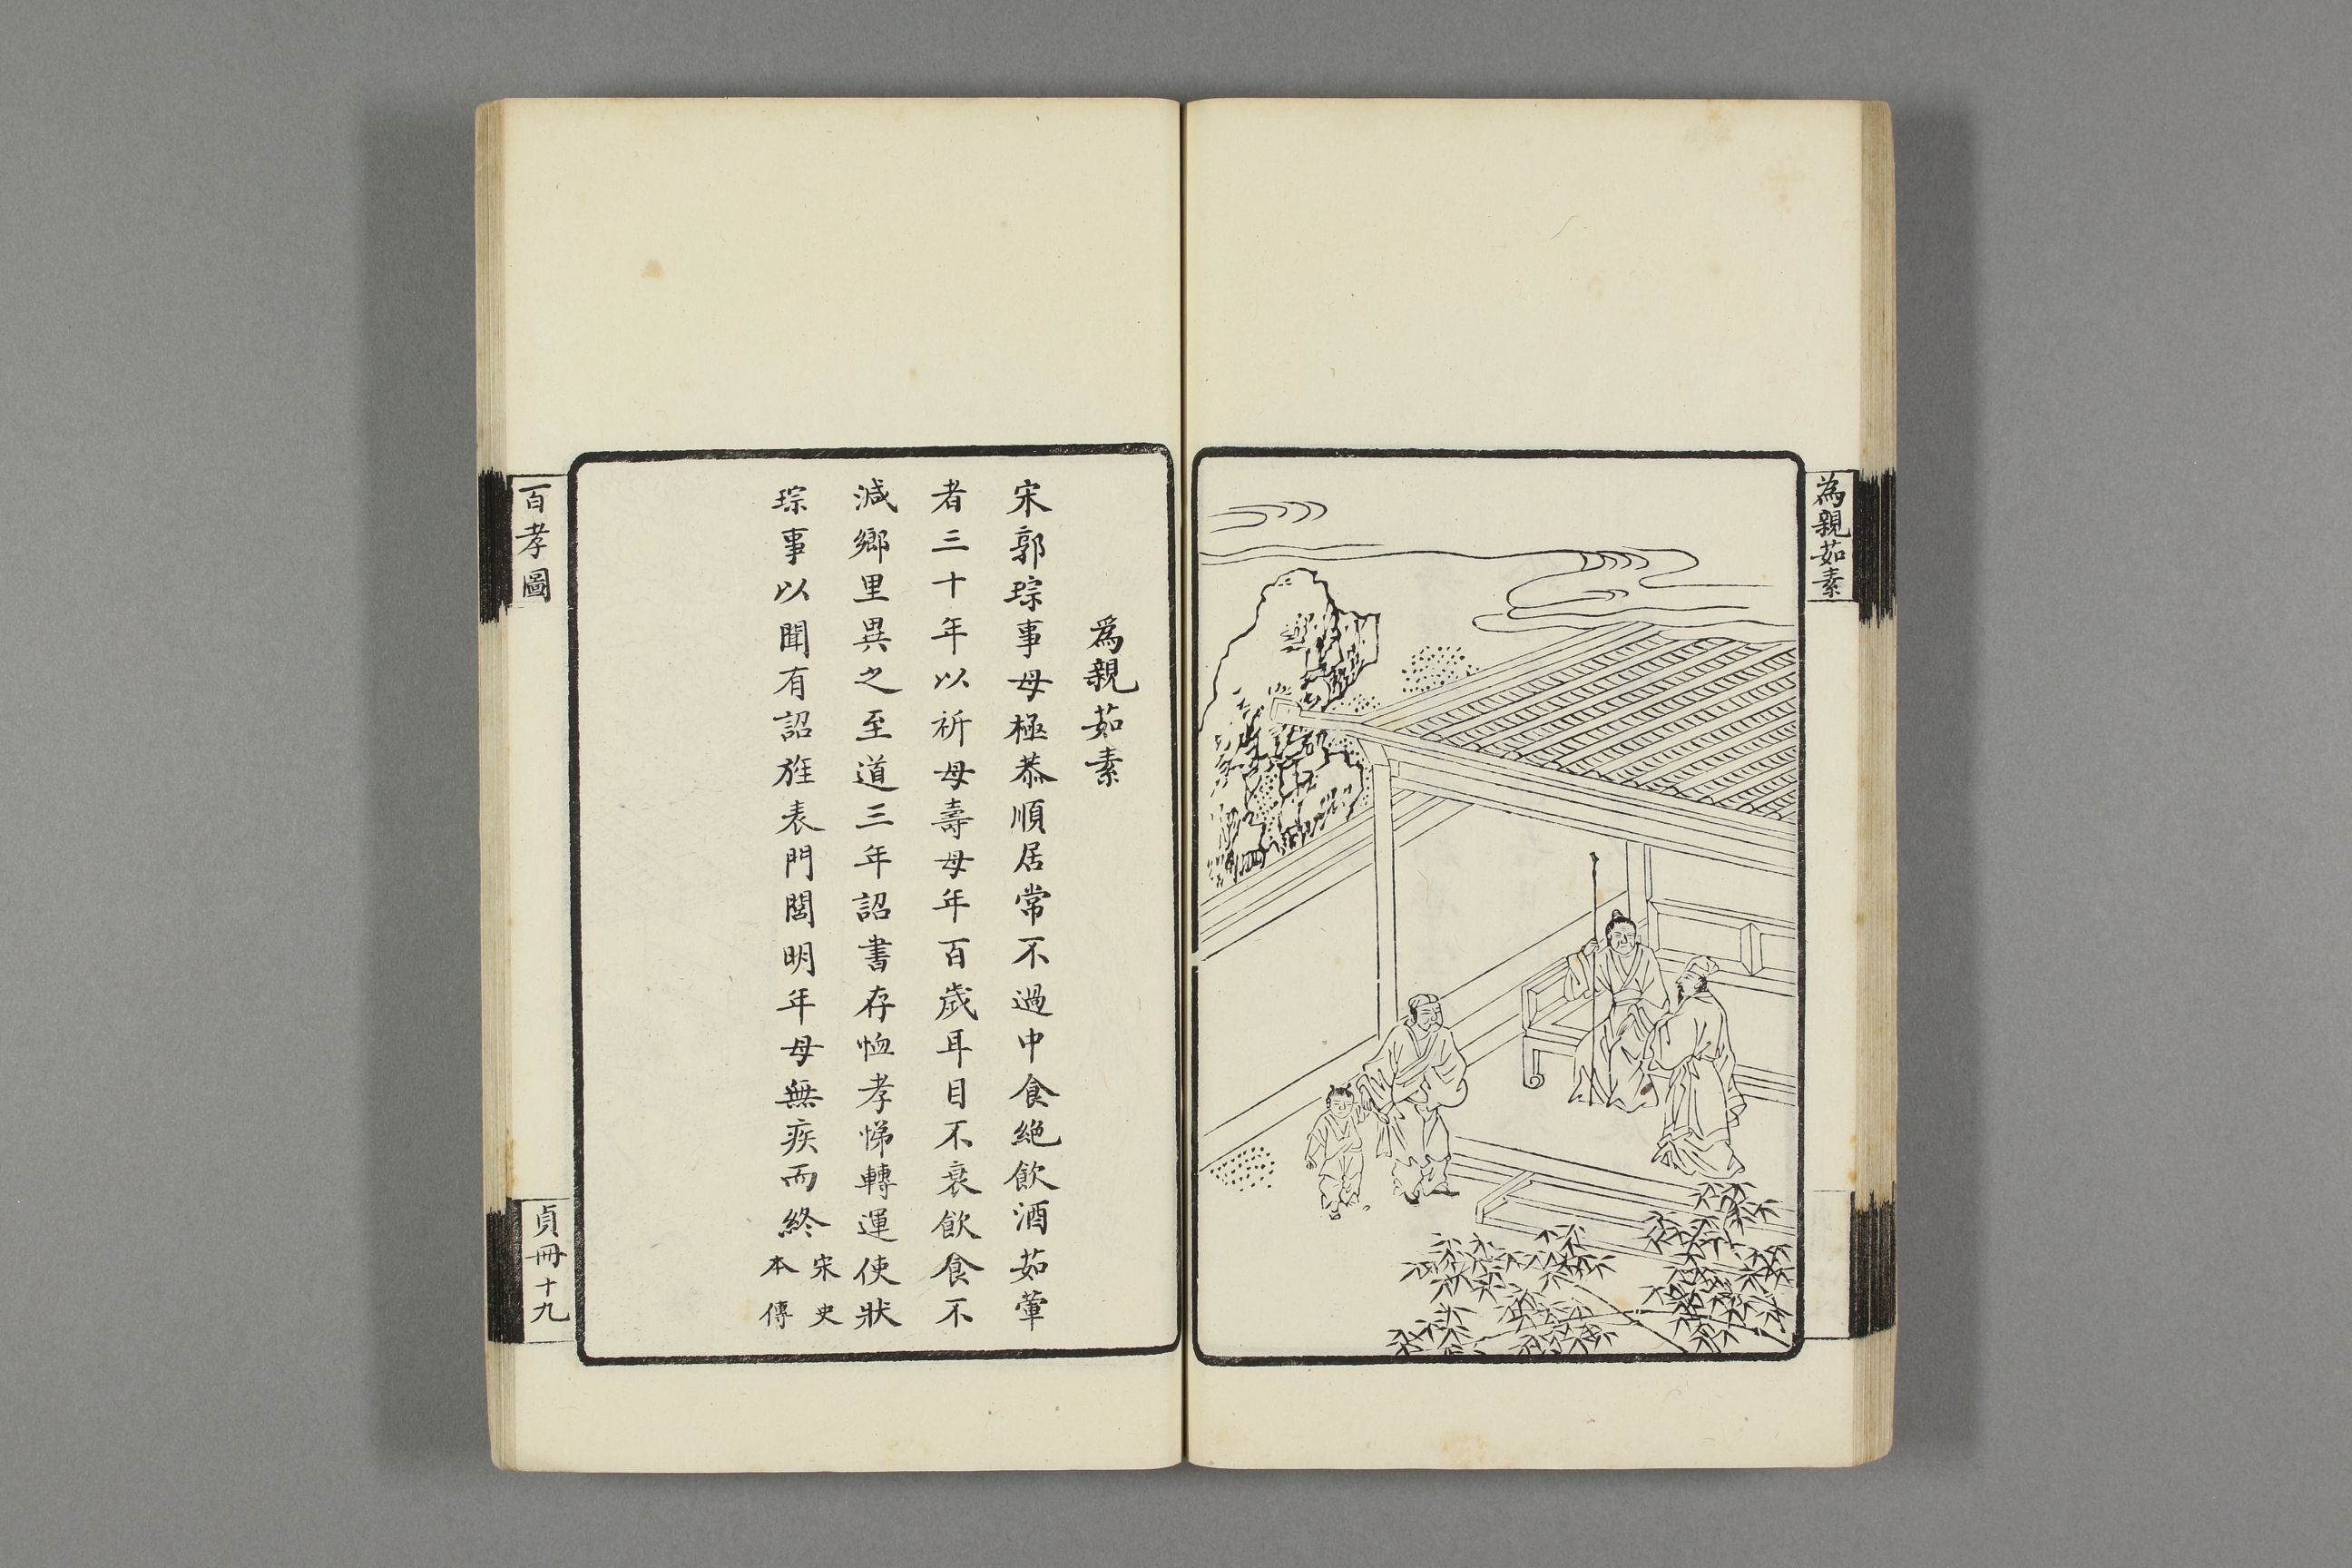 為親茹素
爲親茹素
宋郭琮事母極恭順居常不過中食絶飲酒茹葷
者三十年以祈母壽母年百歲耳目不衰飲食不
減鄉里異之至道三年詔書存恤孝悌轉運使狀
琮事以聞有詔旌表門閭明年母無疾而終
宋史
本傳
百孝圖
貞冊十九